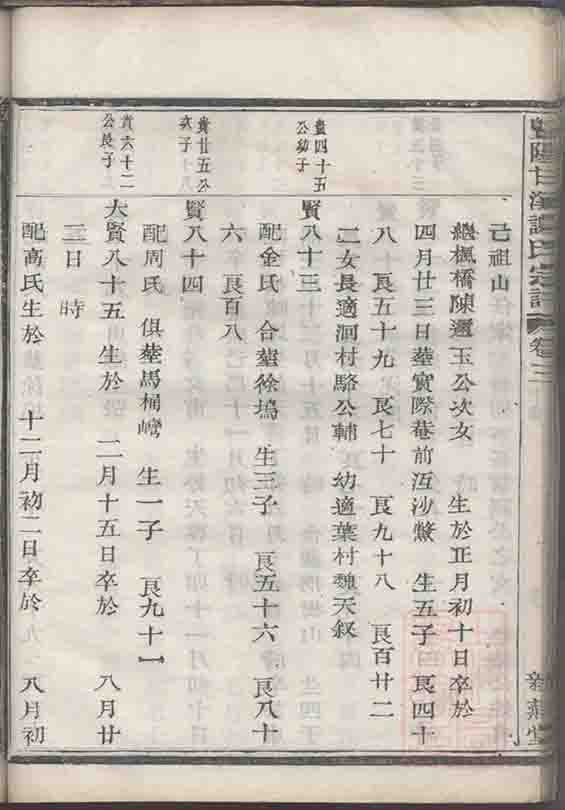 暨陽甘溪譚氏宗譜 卷三
己祖山
繼楓橋陳邇玉公次女 生於正月初十日卒於
四月廿三日塟實際菴前沍沙鱉 生五子曰良四十
八十 良五十九 良七十 良九十八 良百廿二
二女長適洄村駱公輔 幼適葉村魏天叙
貴四十五
公幼子
賢八十三
配金氏 合塟徐塢 生三子 良五十六 良八十
六 良百八
貴廿五公
次子
賢八十四
配周氏 俱塟馬桶灣 生一子 良九十一
貴六十二
公長子
大賢八十五 生於 二月十五日卒於 八月廿
三日 時
配高氏生於 十二月初二日卒於 八月初